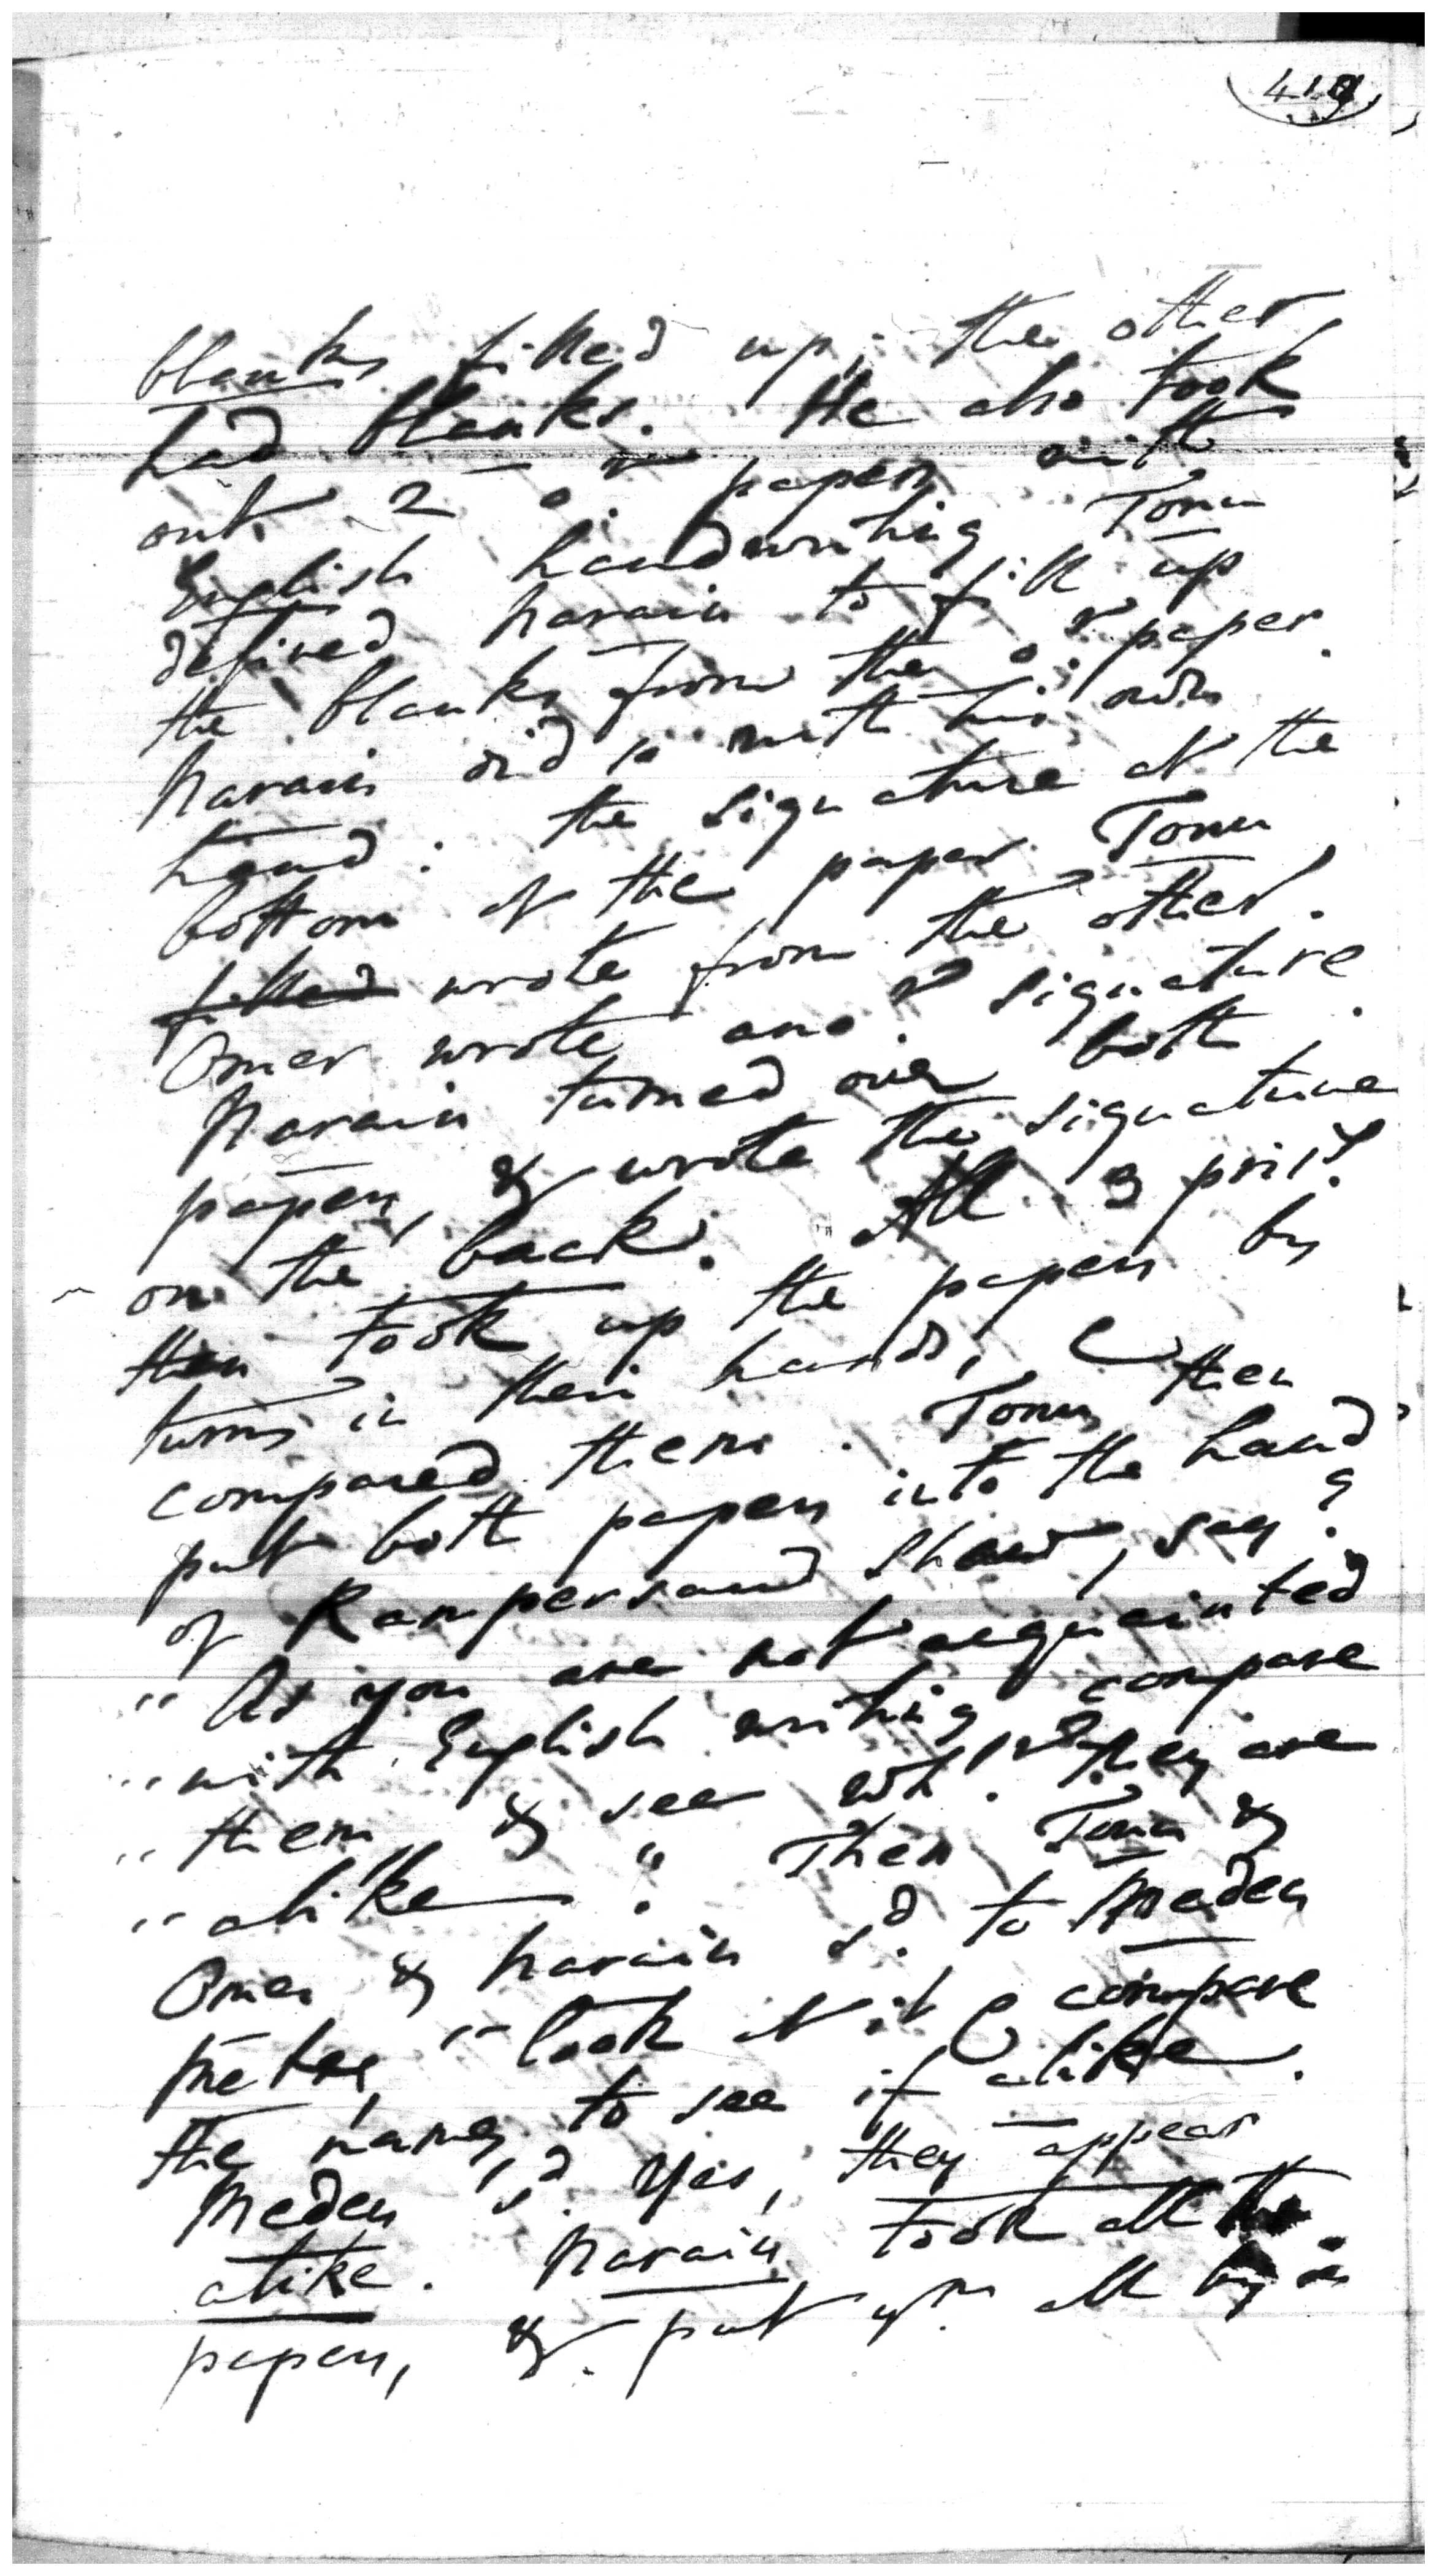 419
blanks filled up; the other
had blanks. He also took
out 2 or papers with
English handwriting Tonu
desired Narain to fill up
the blanks from the or paper.
Narain did so with his own
hand: the signature at the
bottom of the paper Tonu
filled wrote from the other.
Omer wrote anor signature.
Narain turned over both
papers, & wrote the signature
on the back. All 3 prisrs
then took up the papers by
turns in their hands, &
compared them. Tonu then
put both papers into the hand
of Rampersaud Shaw, sayg
"As you are not acquainted
"with English writing compare
"them & see whr they are
"alike." Then Tonu &
Omer & Narain sd. to Meden
Metre, "look at it & compare
the names to see if alike.
Meden sd. Yes, they appear
alike. Narain took all the
papers, & put ym all by